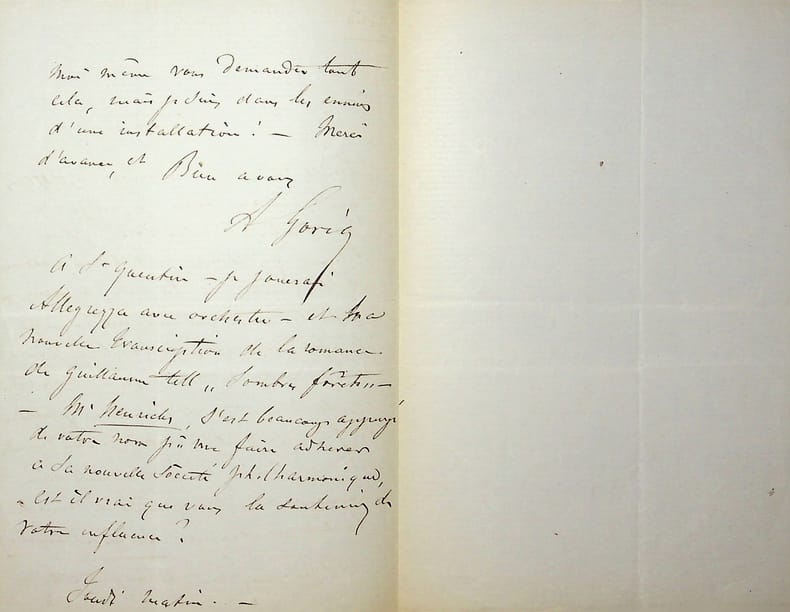 Moi même vous demander tout
cela, mais je suis dans les ennuis
d'une installation! — Merci
d'avance, et Bien a vous
A Goria
à St Quentin — je jouerai
Allegrezza avec orchestre — et ma
nouvelle transcription de la romance
de Guillaume tell „ Sombres forêts „ —
— Mr Henricks, s'est beaucoup appuyé
de votre nom pr me faire adherer
à sa nouvelle Société philharmonique,
- est il vrai que vous la souteniez de
votre influence?
Jeudi matin. —